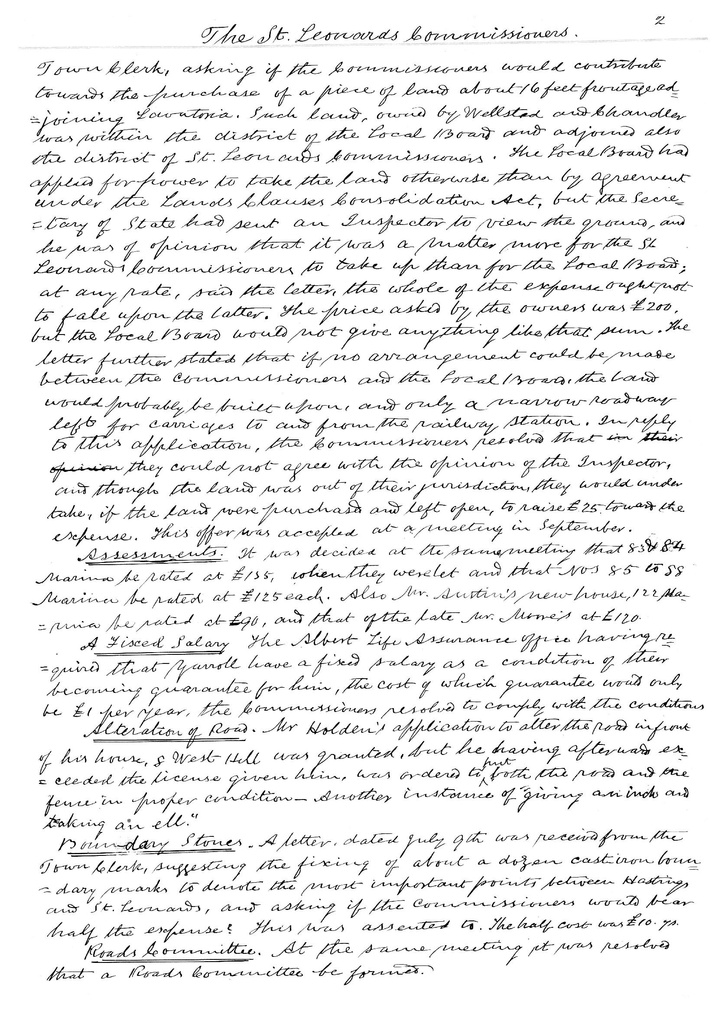 2
The St. Leonards Commissioners.
Town Clerk, asking if the Commissioners would contribute
towards the purchase of a piece of land about 16 feet frontage ad=
=joining Lavatoria. Such land, owned by Wellsted and Chandler
was within the district of the Local Board and adjoined also
the district of St. Leonards Commissioners. The Local Board had
applied for power to take the land otherwise than by agreement
under the Lands Clauses Consolidation Act, but the Secre=
=tary of State had sent an Inspector to view the ground, and
he was of opinion that it was a matter more for the St
Leonards Commissioners to take up than for the Local Board;
at any rate, said the letter, the whole of the expense ought not
to fall upon the latter. The price asked by the owners was £200,
but the Local Board would not give anything like that sum. The
letter further stated that if no arrangement could be made
between the Commissioners and the Local Board, the land
would probably be built upon, and only a narrow roadway
left for carriages to and from the railway station. In reply
to this application, the Commissioners resolved that in their
opinion they could not agree with the opinion of the Inspector,
and though the land was out of their jurisdiction, they would under
take, if the land were purchased and left open, to raise £25 toward the
expense. This offer was accepted at a meeting in September.
Assessments. It was decided at the same meeting that 83 & 84
Marina be rated at £135, when they were let and that Nos 85 to 88
Marina be rated at £125 each. Also Mr. Austin's new house, 122 Ma=
=rina be rated at £90, and that of the late Mr. Morris at £120.
A Fixed Salary The Albert Life Assurance office having re=
=quired that Yarroll have a fixed salary as a condition of their
becoming guarantee for him, the cost of which guarantee would only
be £1 per year, the Commissioners resolved to comply with the conditions
Alteration of Road. Mr Holden's application to alter the road in front
of his house, 8 West Hill was granted, but he having afterwards ex=
=ceeded the license given him, was ordered to put both the road and the
fence in proper condition — Another instance of "giving an inch and
taking an ell."
Boundary Stones. A letter, dated July 9th was received from the
Town Clerk, suggesting the fixing of about a dozen cast iron boun=
=dary marks to denote the most important points between Hastings
and St. Leonards, and asking if the Commissioners would bear
half the expense? This was assented to. The half cost was £10. 7s.
Roads Committee. At the same meeting it was resolved
that a Roads Committee be formed.